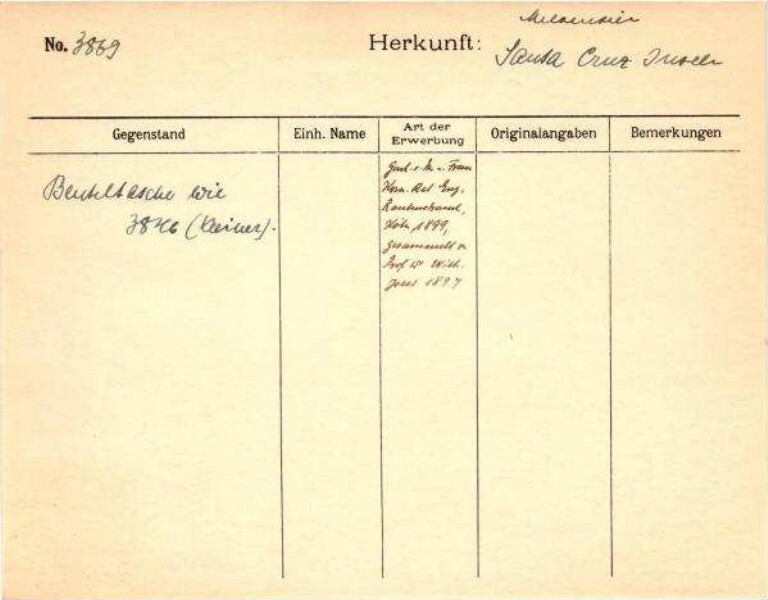 Melanesien
No. 3869
Herkunft:
Santa Cruz Inseln
Gegenstand
Einh. Name
Art der
Erwerbung
Originalangaben
Bemerkungen
Beuteltasche wie
3846 (kleiner).
Gesch. v. M. u. Frau
Kom. Rat Eug.
Rautenstrauch,
Köln 1899,
gesammelt v.
Prof Dr Wilh.
Joest 1897